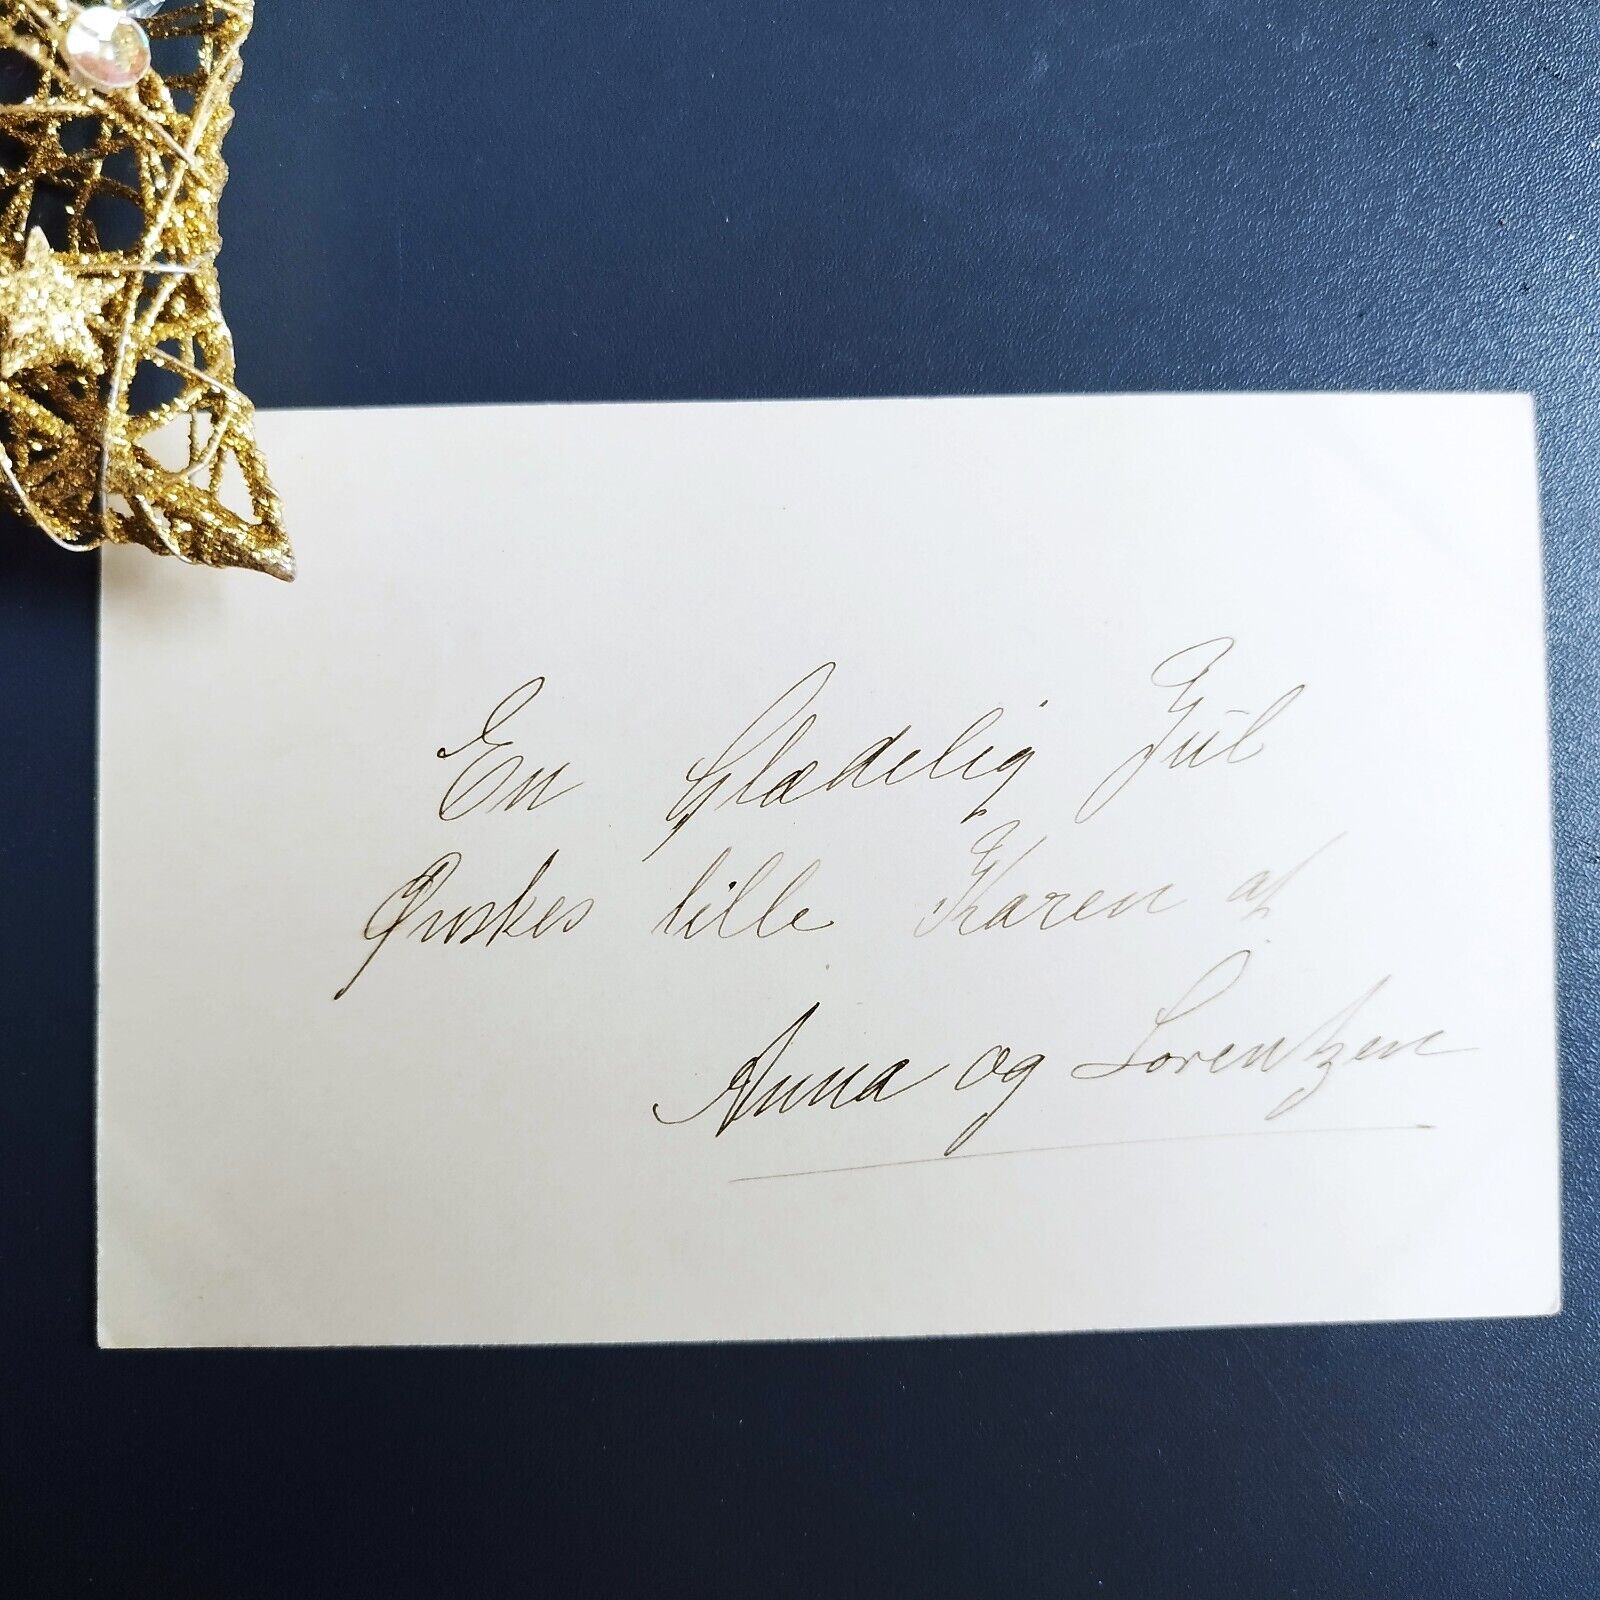 En Glædelig Jul
Ønskes lille Karen af
Anna og Lorentzen